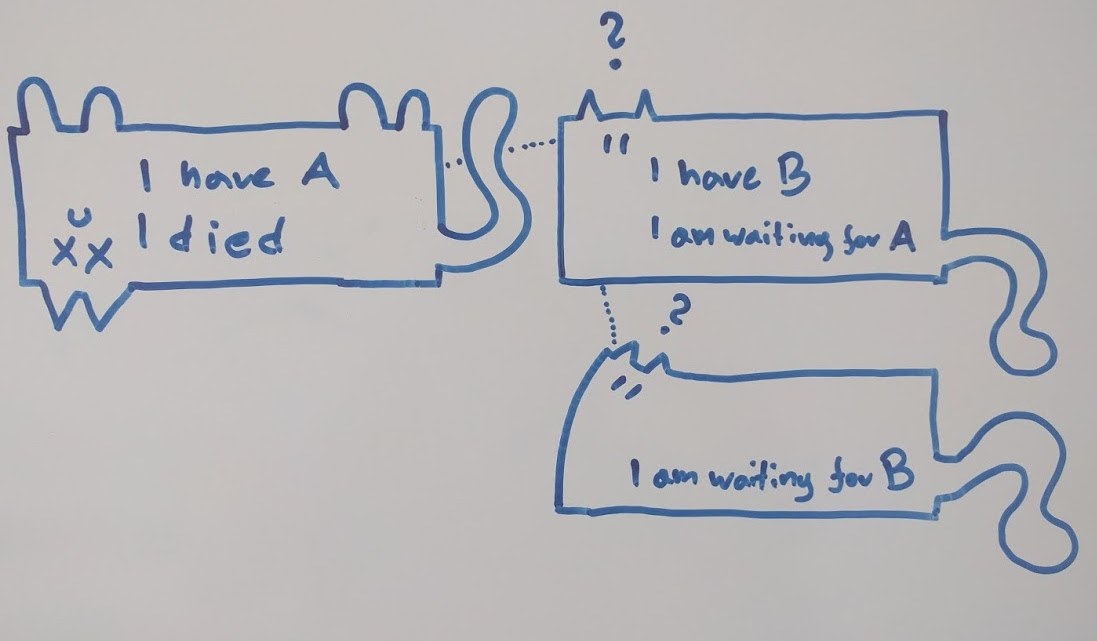 I have A
I died
?
I have B
I am waiting for A
?
I am waiting for B